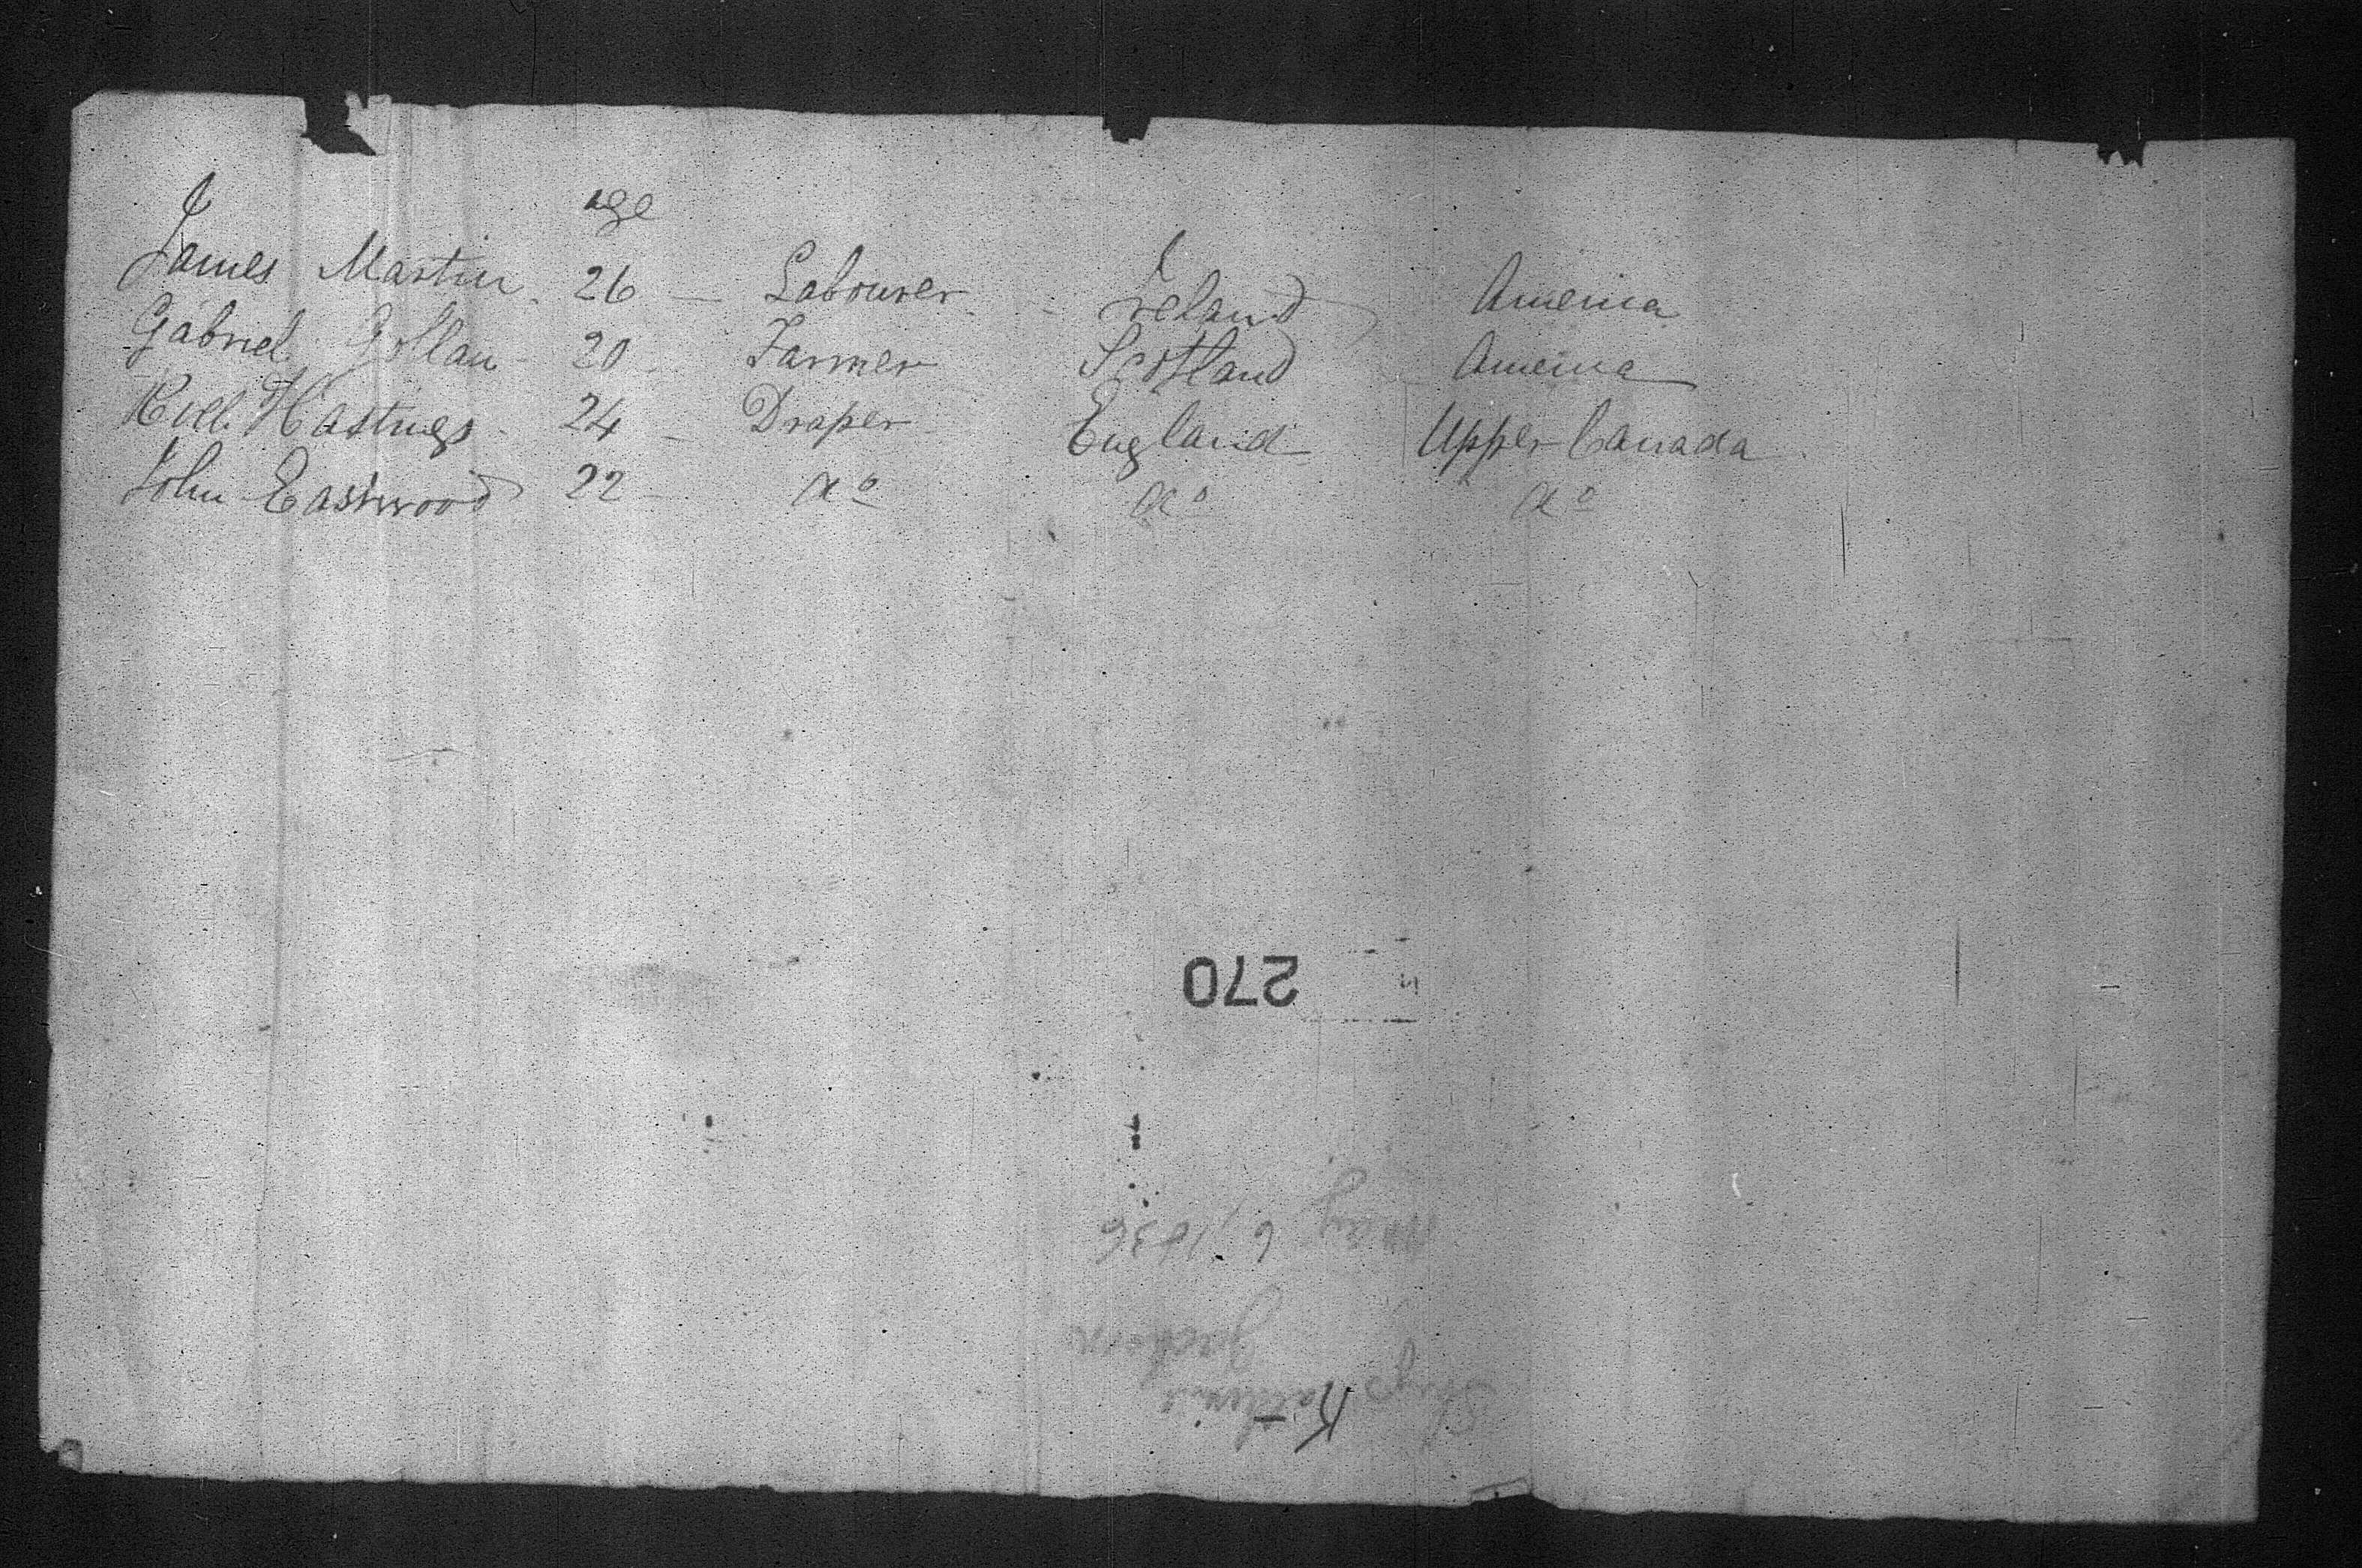 age
James Martin 26 — Labourer - Ireland America
Gabriel Gollan - 20 - Farmer Scotland America
Hastings - 24 - Draper England Upper Canada
John Eastwood 22 - do do do
270
May 6, 1836
Jackson
Ship